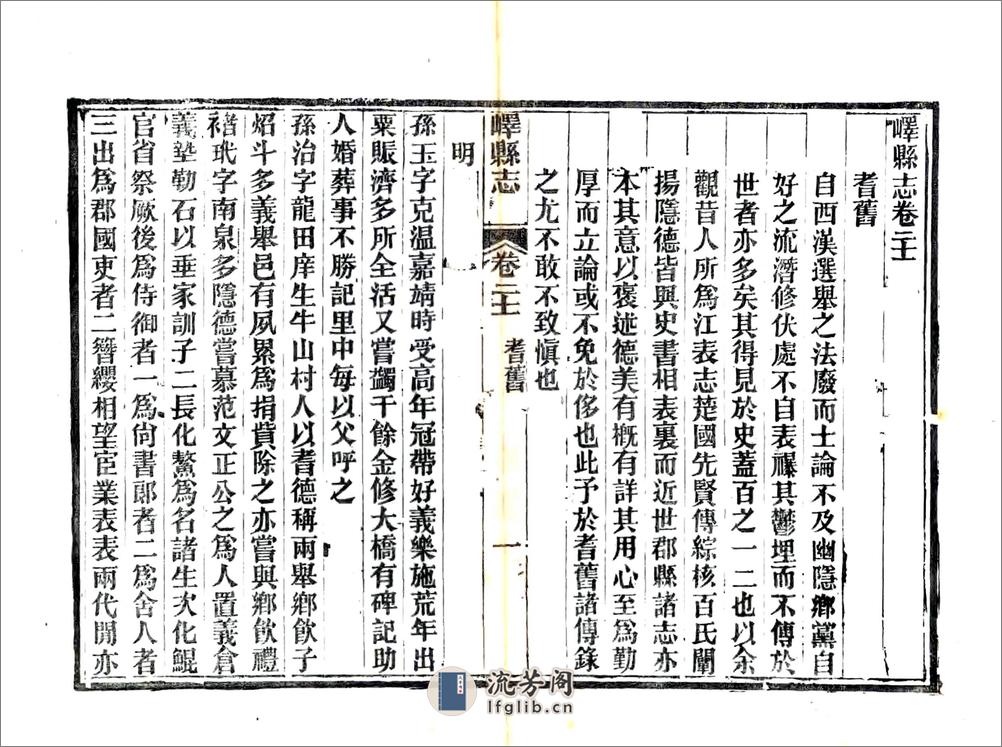 嶧縣志卷二十一
耆舊
自西漢選舉之法廢而士論不及幽隱鄉黨自
好之流潛修伏處不自表襮其鬱埋而不傳於
世者亦多矣其得見於史蓋百之一二也以余
觀昔人所爲江表志楚國先賢傳綜核百氏闡
揚隱德皆與史書相表裏而近世郡縣諸志亦
本其意以褒述德美有槪有詳其用心至爲勤
厚而立論或不免於侈也此予於耆舊諸傳錄
之尤不敢不致愼也
嶧縣志 卷二十一 耆舊 一
明
孫玉字克溫嘉靖時受高年冠帶好義樂施荒年出
粟賑濟多所全活又嘗蠲千餘金修大橋有碑記助
人婚葬事不勝記里中每以父呼之
孫治字龍田庠生牛山村人以耆德稱兩舉鄉飮子
炤斗多義舉邑有夙累爲捐貲除之亦嘗與鄉飮禮
褚玳字南泉多隱德嘗慕范文正公之爲人置義倉
義塾勒石以垂家訓子二長化鰲爲名諸生次化鯤
官省祭厥後爲侍御者一爲尙書郞者二爲舍人者
三出爲郡國吏者二簪纓相望宦業表表兩代開亦
流芳阁
lfglib.cn